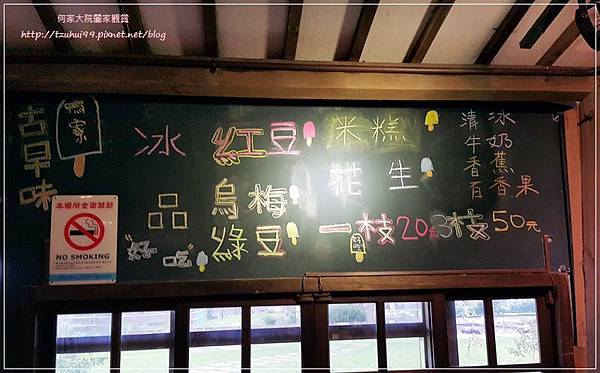 何家大院闔家觀賞
http://tzuhui99.pixnet.net/blog
古早味
鴨寮
冰品
"好吃"
紅豆
烏梅
綠豆
米糕
花生
一枝20元 3枝50元
清冰
牛奶
香蕉
百香果
本場所全面禁菸
NO SMOKING